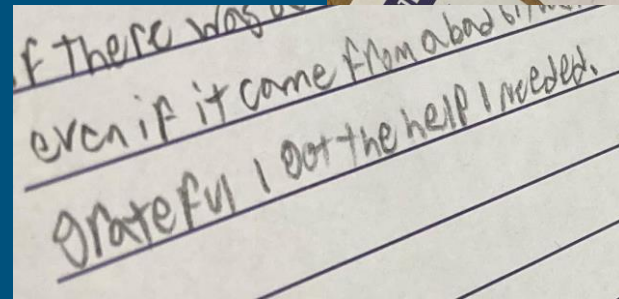 f there was
even if it came from a bad
grateful I got the help I needed.